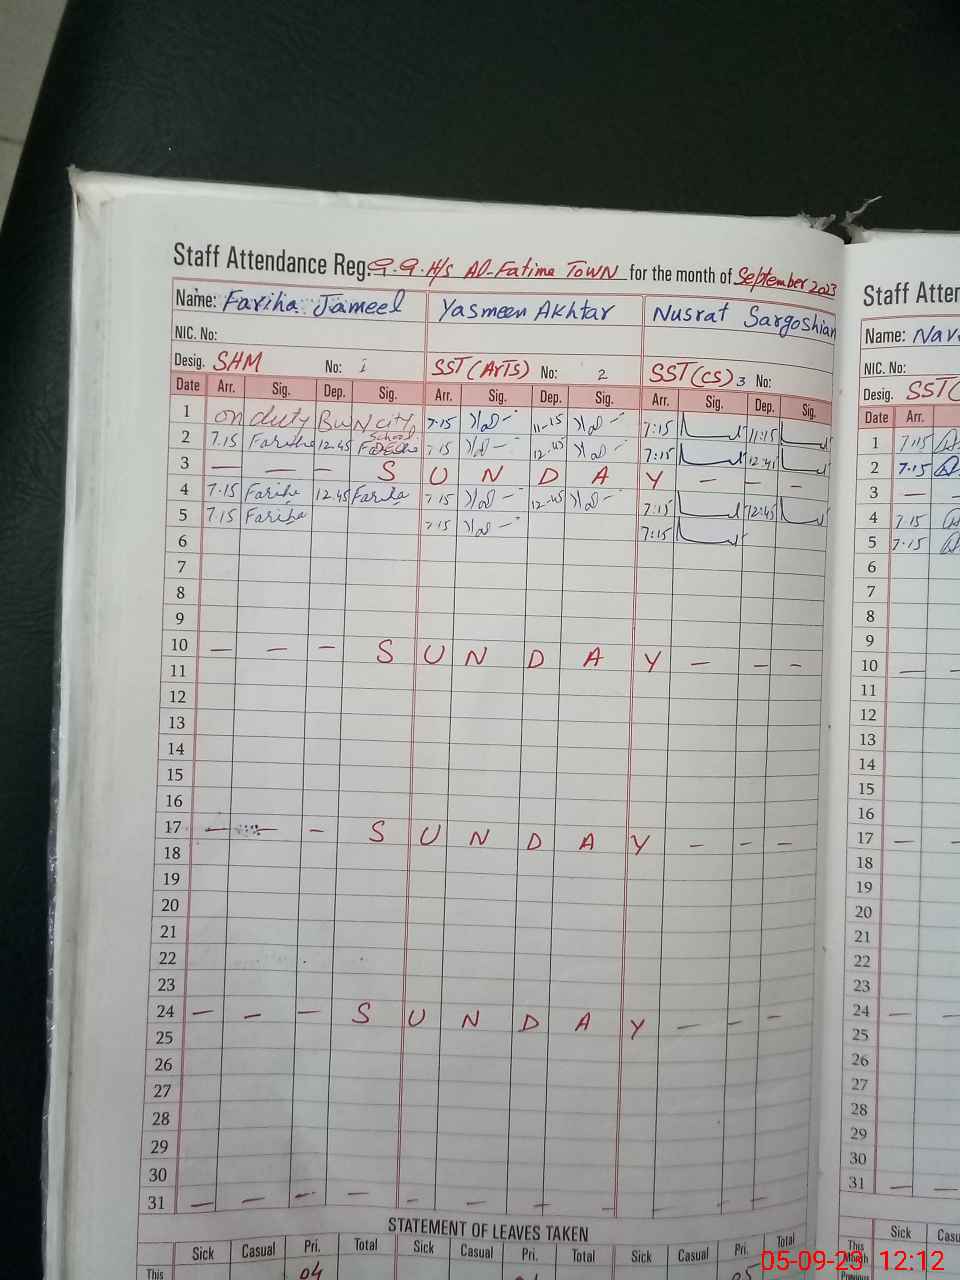 Staff Attendance Reg. G.G.H/S Al-Fatima TOWN for the month of September 2023
Name: Fariha Jameel Yasmeen Akhtar Nusrat Sargoshian
NIC. No:
Desig. SHM No: 1 SST (ArTS) No: 2 SST (CS) 3 No:
Date Arr. Sig. Dep. Sig. Arr. Sig. Dep. Sig. Arr. Sig. Dep. Sig.
1 on duty 7.15 11-15 7:15 11:15
2 7.15 Fariha 12.45 7.15 12.45 7:15 12:45
3 — — — S U N D A Y — — —
4 7.15 Fariha 12.45 Fariha 7.15 12.45 7:15 12:45
5 7.15 Fariha 7.15 7:15
6
7
8
9
10 — — — S U N D A Y — — —
11
12
13
14
15
16
17 — — — S U N D A Y — — —
18
19
20
21
22
23
24 — — — S U N D A Y — — —
25
26
27
28
29
30
31 — — — — — — — — — —
STATEMENT OF LEAVES TAKEN
Sick Casual Pri. Total Sick Casual Pri. Total Sick Casual Pri. Total
This 04 05
Staff Atten
Name:
NIC. No:
Desig. SST(
Date Arr.
1 7.15
2 7.15
3 — —
4 7.15
5 7.15
6
7
8
9
10 — —
11
12
13
14
15
16
17 — —
18
19
20
21
22
23
24 — —
25
26
27
28
29
30
31 — —
Sick Cas
This Month
05-09-23 12:12